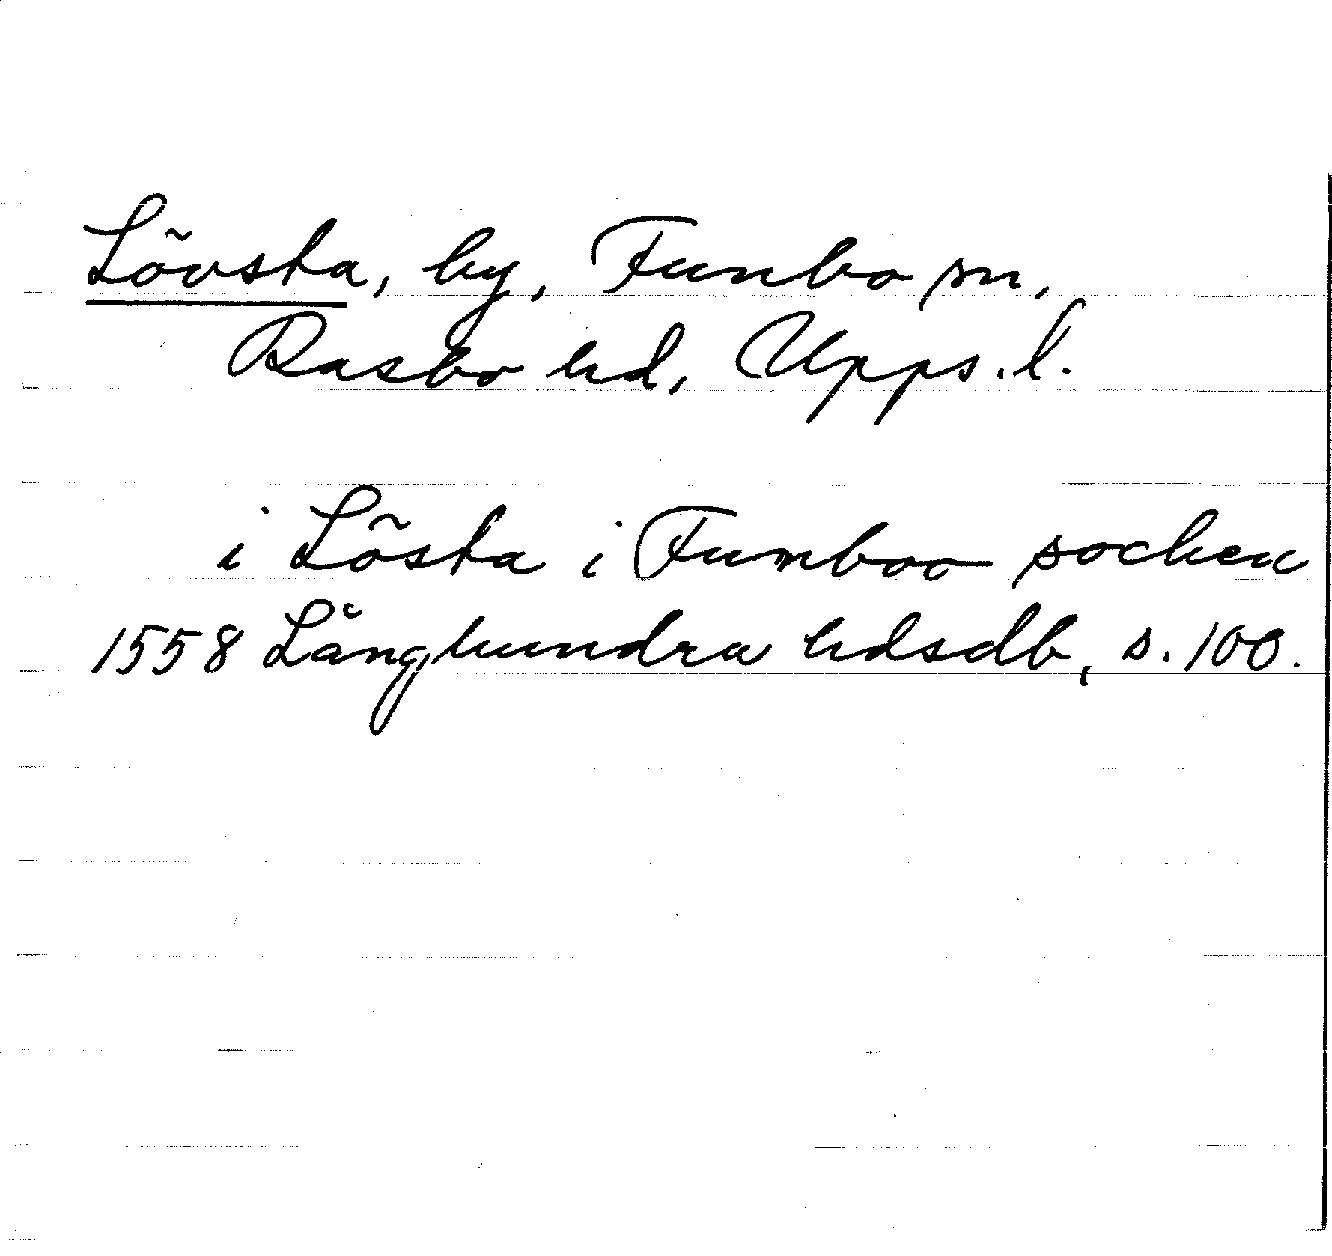 Lövsta, by, Funbo sn,
Rasbo hd, Upps. l.
i Lösta i Funboo socken
1558 Långhundra hdsdb, s. 100.